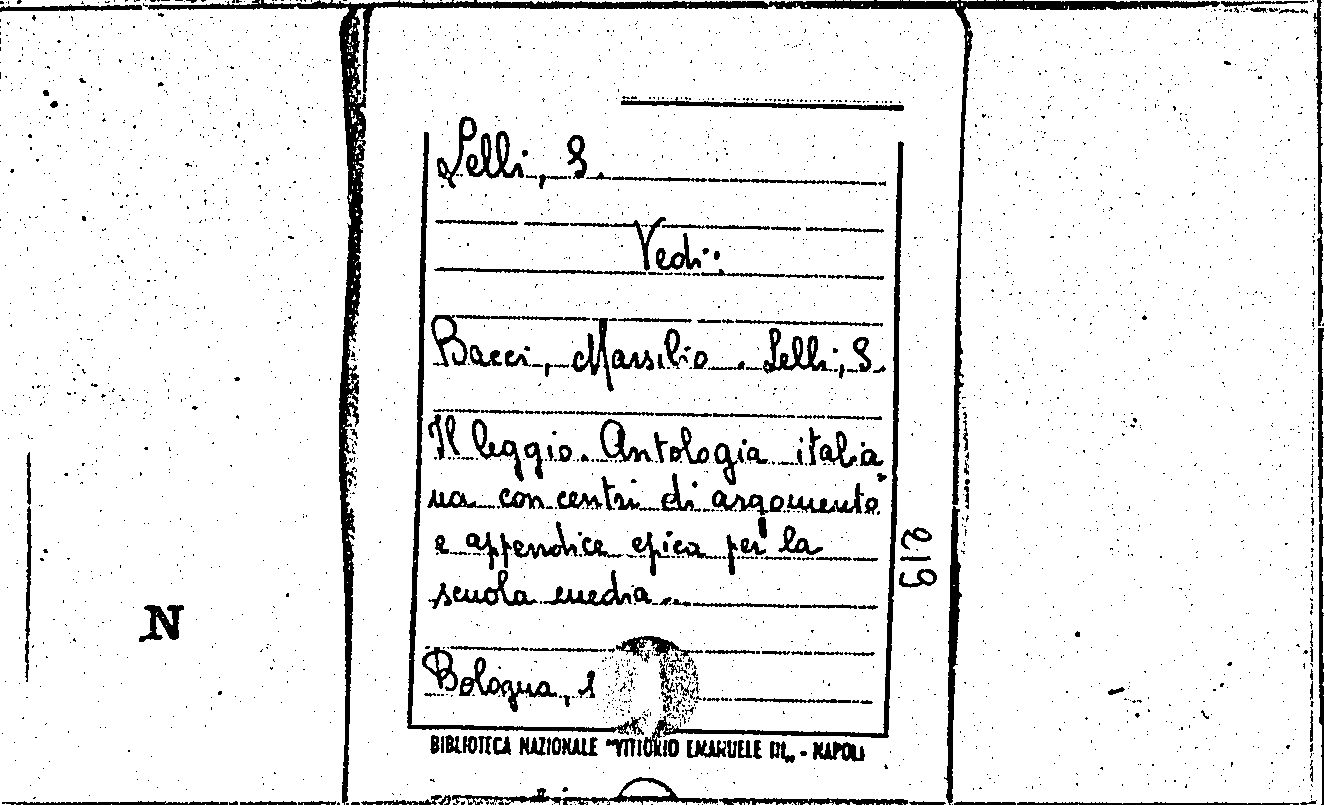 Lelli, S.
Vedi:
Bacci, Marsilio. Lelli, S.
Il leggio. Antologia italia
na con centri di argomento
e appendice epica per la
scuola media..
Bologna, 1
BIBLIOTECA NAZIONALE "VITTORIO EMANUELE III„ - NAPOLI
219
N